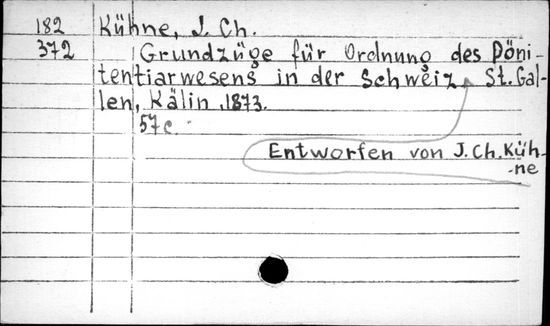 182 Kühne, J. Ch.
372 Grundzüge für Ordnung des Pöni-
tentiarwesens in der Schweiz. St. Gal-
len, Kälin, 1873.
57c.
Entworfen von J. Ch. Küh-
-ne